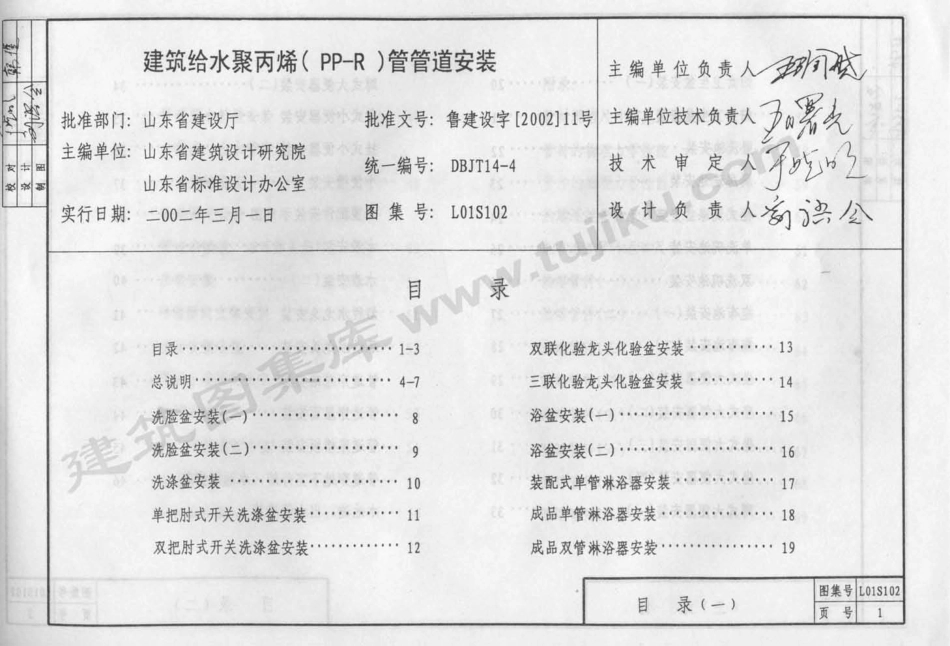 建筑给水聚丙烯( PP-R )管管道安装
批准部门: 山东省建设厅
批准文号: 鲁建设字[2002]11号
主编单位: 山东省建筑设计研究院
山东省标准设计办公室
统一编号: DBJT14-4
实行日期: 二00二年三月一日
图集号: L01S102
主编单位负责人
主编单位技术负责人
技术审定人
设计负责人
校对
设计
制图
目 录
目录 1-3
总说明 4-7
洗脸盆安装(一) 8
洗脸盆安装(二) 9
洗涤盆安装 10
单把肘式开关洗涤盆安装 11
双把肘式开关洗涤盆安装 12
双联化验龙头化验盆安装 13
三联化验龙头化验盆安装 14
浴盆安装(一) 15
浴盆安装(二) 16
装配式单管淋浴器安装 17
成品单管淋浴器安装 18
成品双管淋浴器安装 19
目 录(一)
图集号 L01S102
页号 1
建筑图集库 www.tujiku.com